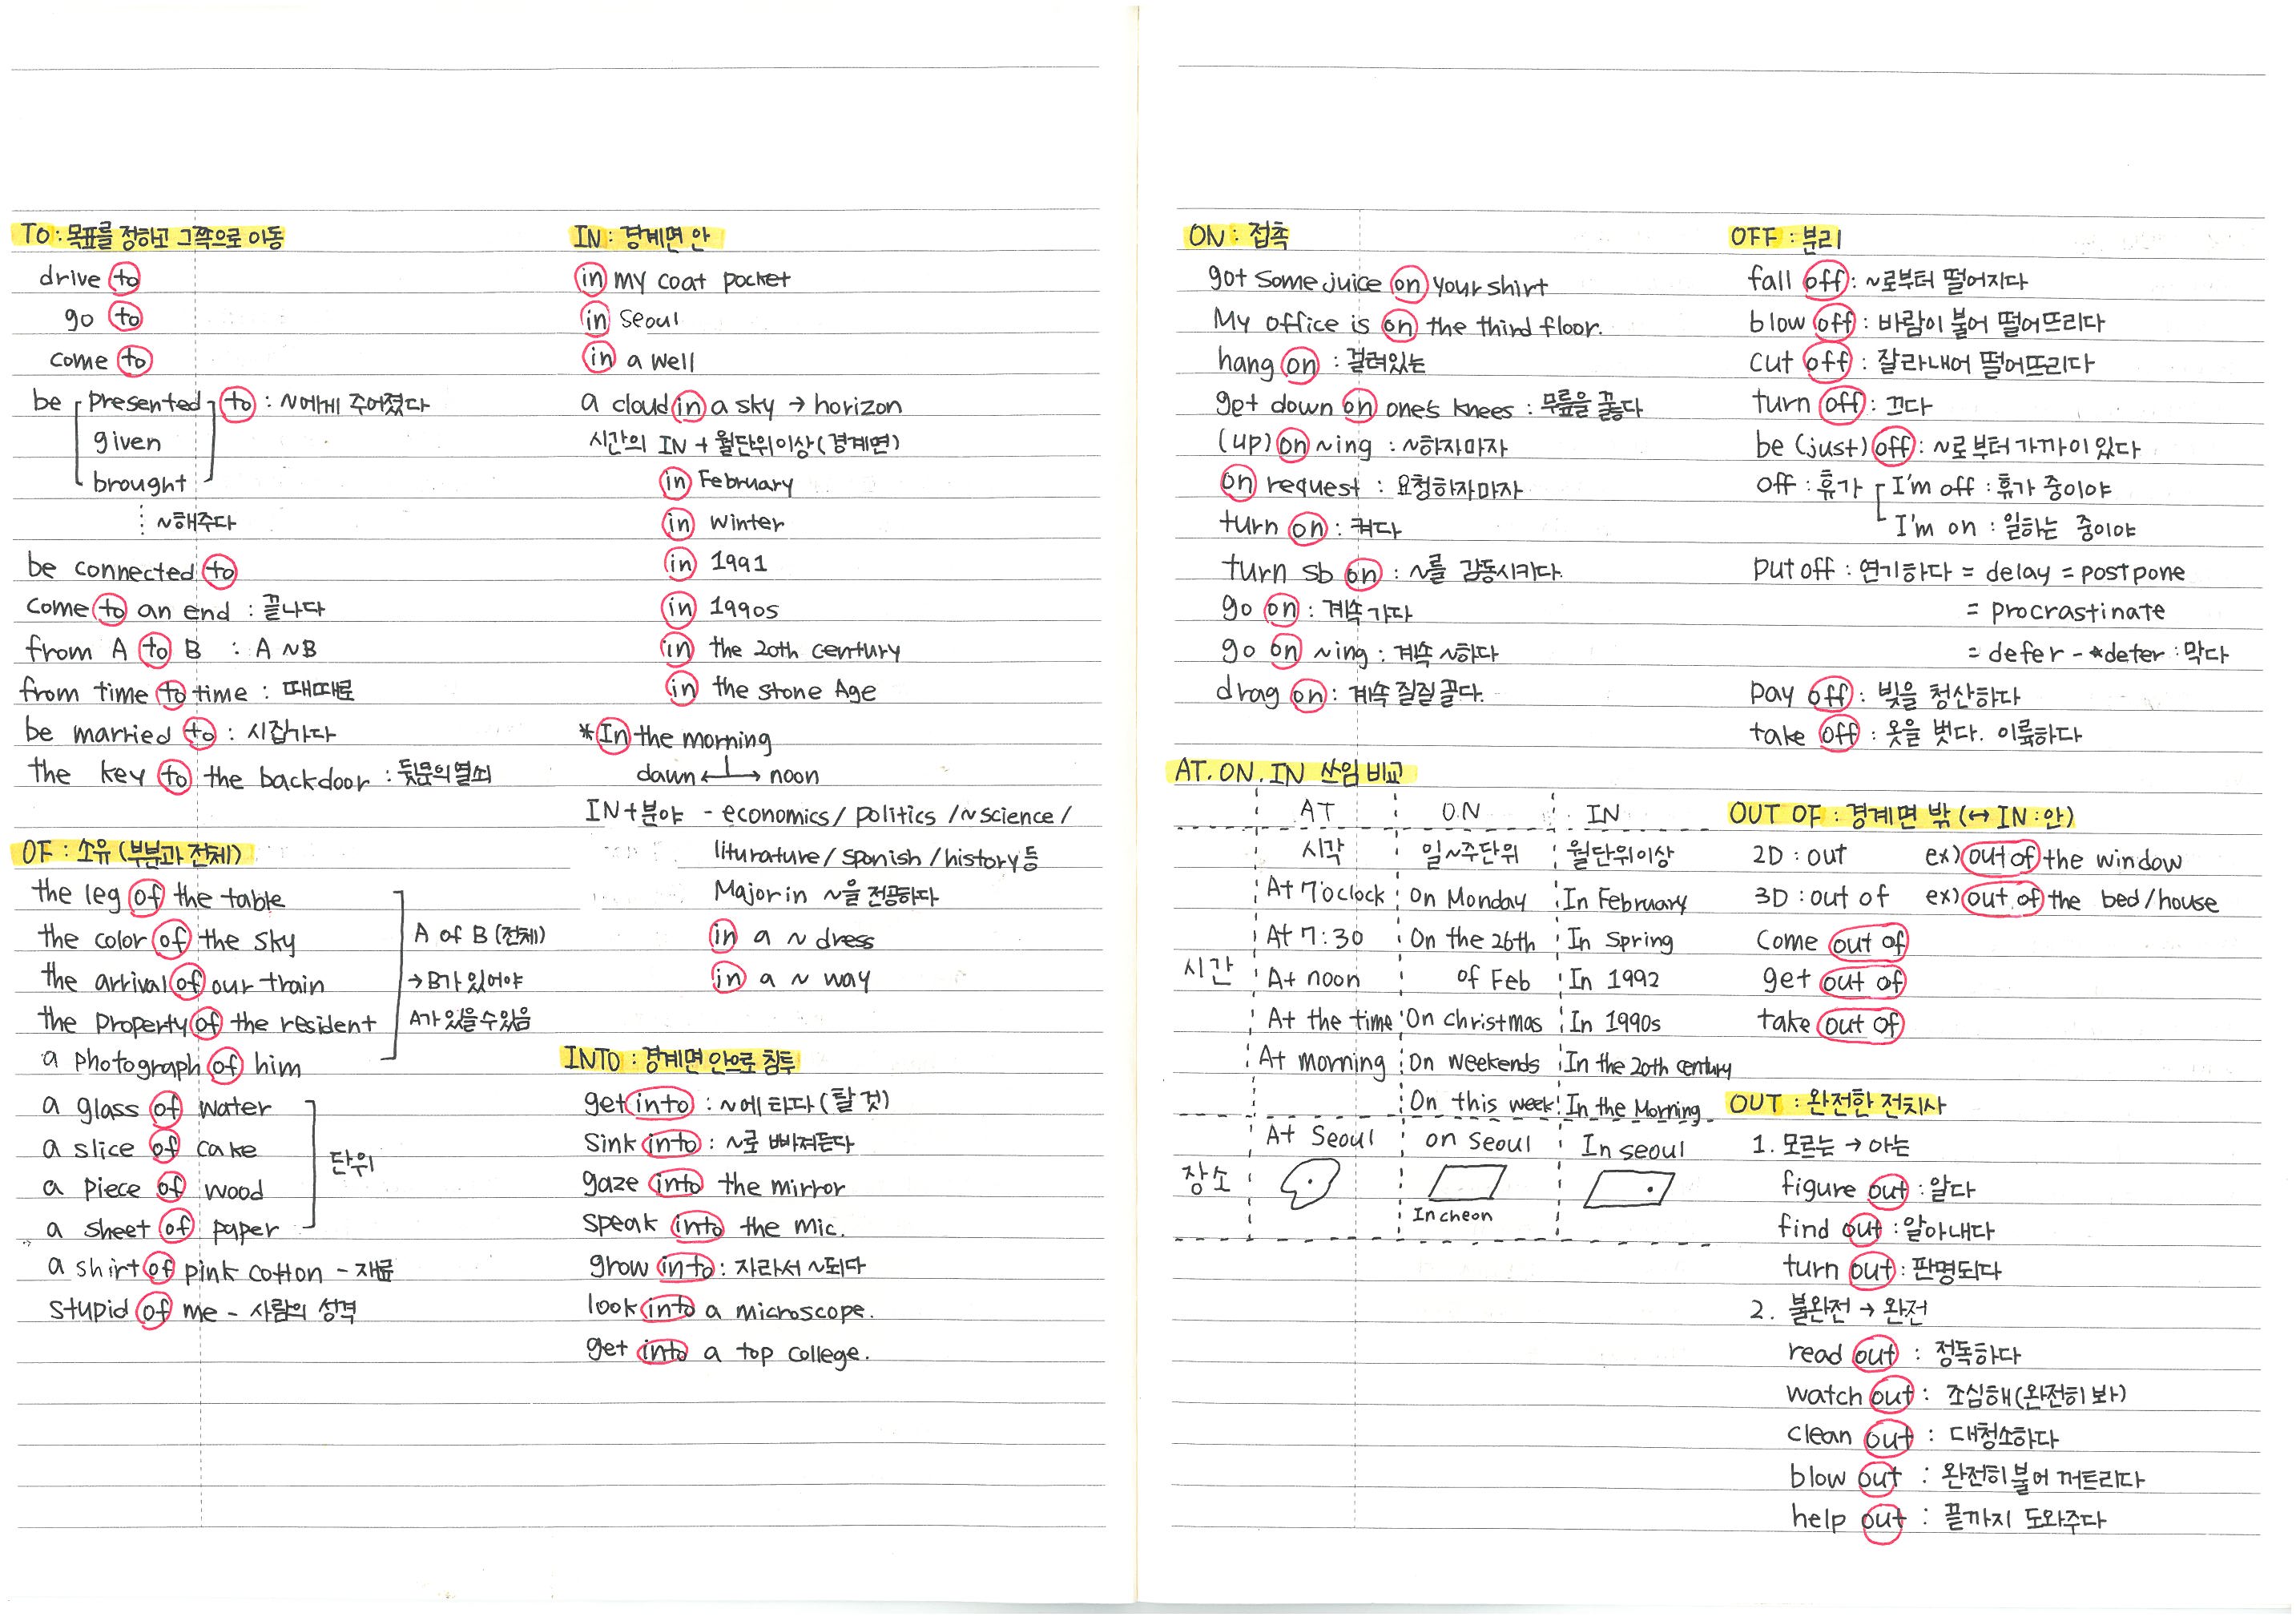 TO : 목표를 정하고 그쪽으로 이동
drive to
go to
come to
be presented to : ~에게 주어졌다
given
brought
⋮ ~해주다
be connected to
come to an end : 끝나다
from A to B : A ~ B
from time to time : 때때로
be married to : 시집가다
the key to the backdoor : 뒷문의 열쇠
OF : 소유 (부분과 전체)
the leg of the table
the color of the sky
the arrival of our train
the property of the resident
a photograph of him
A of B (전체)
→ B가 있어야
A가 있을 수 있음
a glass of water
a slice of cake
a piece of wood
a sheet of paper
단위
a shirt of pink cotton - 재료
stupid of me - 사람의 성격
IN : 경계면 안
in my coat pocket
in seoul
in a well
a cloud in a sky → horizon
시간의 IN + 월단위이상 (경계면)
in February
in winter
in 1991
in 1990s
in the 20th century
in the stone Age
* In the morning
dawn ← → noon
IN + 분야 - economics / politics / ~science /
liturature / spanish / history 등
Major in ~을 전공하다
in a ~ dress
in a ~ way
INTO : 경계면 안으로 침투
get into : ~에 타다 (탈 것)
sink into : ~로 빠져든다
gaze into the mirror
speak into the mic.
grow into : 자라서 ~되다
look into a microscope.
get into a top college.
ON : 접촉
got some juice on your shirt
My office is on the third floor.
hang on : 걸려있는
get down on one's knees : 무릎을 꿇다
(up) on ~ing : ~하자마자
on request : 요청하자마자
turn on : 켜다
turn sb on : ~를 감동시키다.
go on : 계속 가다
go on ~ing : 계속 ~하다
drag on : 계속 질질 끌다.
AT. ON. IN 쓰임 비교
AT ON IN
시각 일~주단위 월단위이상
At 7 o'clock On Monday In February
At 7:30 On the 26th In Spring
시간 At noon of Feb In 1992
At the time On christmas In 1990s
At morning On weekends In the 20th century
On this week In the Morning
At Seoul on seoul In seoul
장소
Incheon
OFF : 분리
fall off : ~로부터 떨어지다
blow off : 바람이 불어 떨어뜨리다
cut off : 잘라내어 떨어뜨리다
turn off : 끄다
be (just) off : ~로부터 가까이 있다
off : 휴가 I'm off : 휴가 중이야
I'm on : 일하는 중이야
put off : 연기하다 = delay = postpone
= procrastinate
= defer - *deter : 막다
pay off : 빚을 청산하다
take off : 옷을 벗다. 이륙하다
OUT OF : 경계면 밖 (↔ IN : 안)
2D : out ex) out of the window
3D : out of ex) out of the bed / house
come out of
get out of
take out of
OUT : 완전한 전치사
1. 모르는 → 아는
figure out : 알다
find out : 알아내다
turn out : 판명되다
2. 불완전 → 완전
read out : 정독하다
watch out : 조심해 (완전히 봐)
clean out : 대청소하다
blow out : 완전히 불어 꺼트리다
help out : 끝까지 도와주다